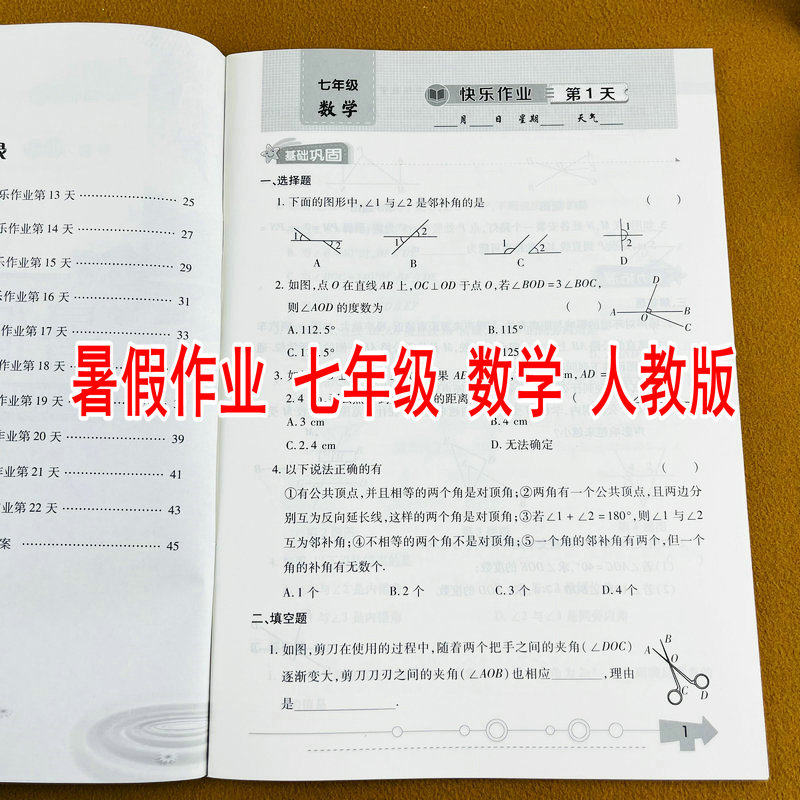 录
乐作业第 13 天 ………………… 25
乐作业第 14 天 ………………… 27
乐作业第 15 天 ………………… 29
乐作业第 16 天 ………………… 31
作业第 17 天 ………………… 33
作业第 18 天
作业第 19 天
作业第 20 天 ………………… 39
作业第 21 天 ………………… 41
业第 22 天 ………………… 43
案 ………………… 45
七年级
数学
快乐作业 第 1 天
____月____日 星期____ 天气____
基础巩固
一、选择题
1. 下面的图形中,∠1 与∠2 是邻补角的是 ( )
1 2 1 2 1 2 1 2
A B C D
2. 如图,点 O 在直线 AB 上,OC⊥OD 于点 O,若∠BOD=3∠BOC,
则∠AOD 的度数为 ( )
D
A O B
C
A. 112.5° B. 115°
暑假作业 七年级 数学 人教版
A. 3 cm B. 4 cm
C. 2.4 cm D. 无法确定
4. 以下说法正确的有 ( )
①有公共顶点,并且相等的两个角是对顶角;②两角有一个公共顶点,且两边分
别互为反向延长线,这样的两个角是对顶角;③若∠1+∠2=180°,则∠1 与∠2
互为邻补角;④不相等的两个角不是对顶角;⑤一个角的邻补角有两个,但一个
角的补角有无数个.
A. 1 个 B. 2 个 C. 3 个 D. 4 个
二、填空题
1. 如图,剪刀在使用的过程中,随着两个把手之间的夹角(∠DOC)
逐渐变大,剪刀刀刃之间的夹角(∠AOB)也相应______,理由
是____________.
A B
O
C D
1